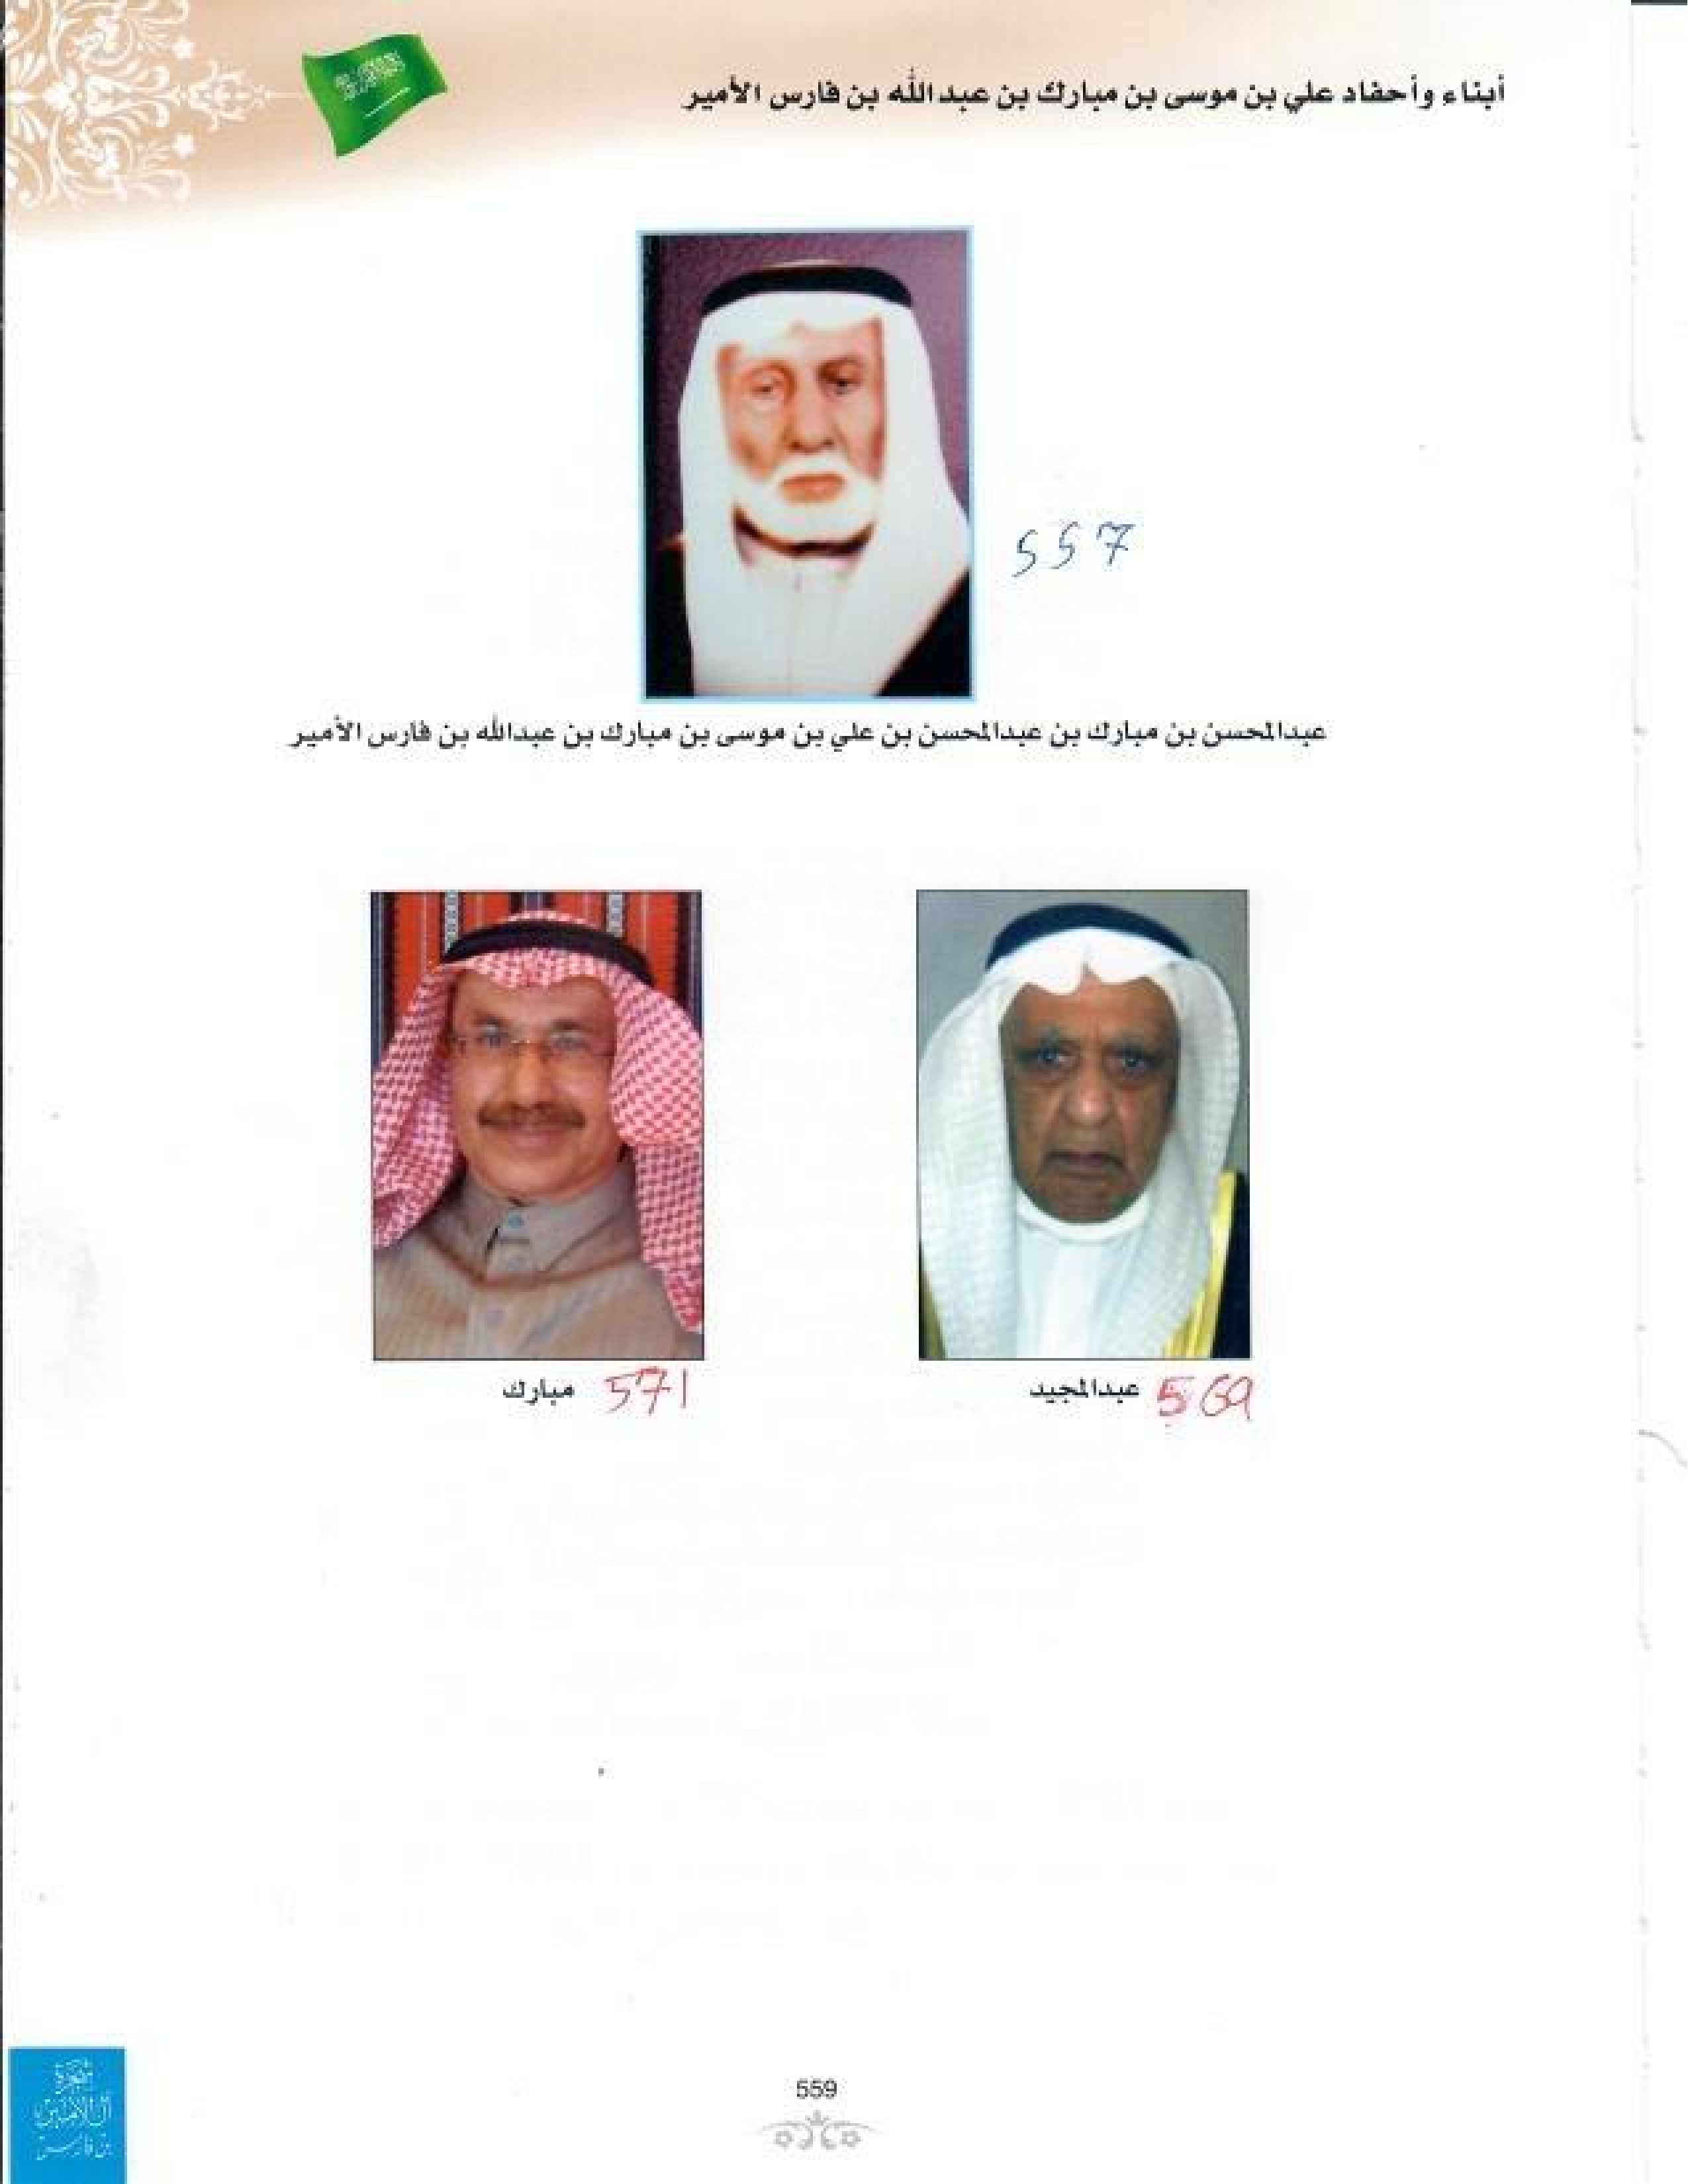 أبناء وأحفاد علي بن موسى بن مبارك بن عبدالله بن فارس الأمير
557
عبدالمحسن بن مبارك بن عبدالمحسن بن علي بن موسى بن مبارك بن عبدالله بن فارس الأمير
569 عبدالمجيد
571 مبارك
شجرة
آل الأمير
بن فارس
559